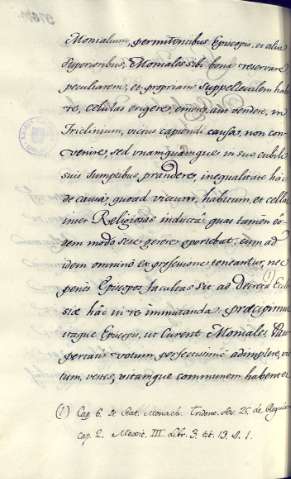 Monialium, permittentibus Episcopis, et aliis
Superioribus, Moniales sibi bona reservare
peculiarem, et propriam suppellectilem habe-
re, cellulas erigere, emere, aut vendere, in
Triclinium, victus capiendi causa, non con-
venire, sed unamquamque in suo cubili
suis sumptibus prandere, inequalitate hac
de causa quoad victum, habitum, et cellas
inter Religiosas inducta, quas tamen eo-
dem modo sese gerere oportebat, cum ad
idem omnino ex professione teneantur, nec
penes Episcopos facultas sit ad Decreta Eccle
siae hac in re immutanda: praecipimus
itaque Episcopis, ut curent Moniales Pau-
pertatis votum perfectissime adimplere, vic-
tum, vestes, vitamque communem habere, et
(1) Cap. 6. de Stat. Monach. Trident. Ses. 25. de Regularib.
cap. 2. Mexic. III. Libr. 3. tit. 13. §. 1.